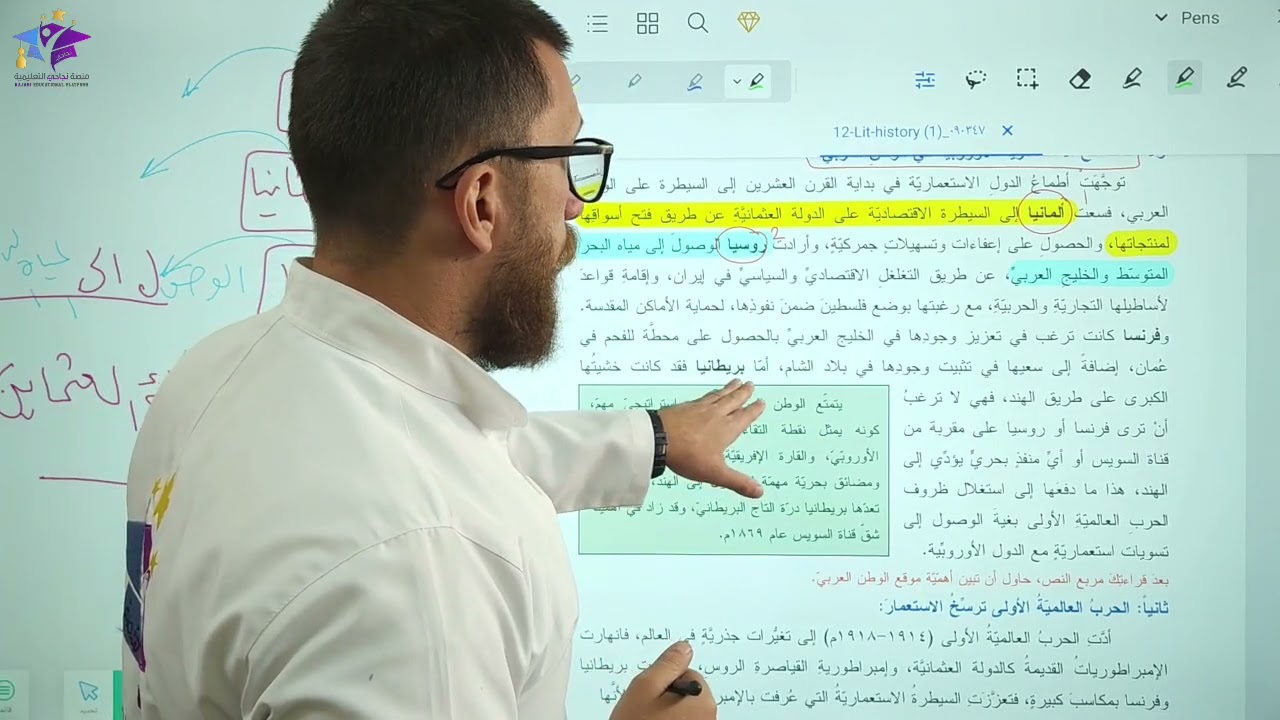 منصة نجاحي التعليمية
NAJAHI EDUCATIONAL PLATFORM
Pens
12-Lit-history (1)_٠٩٠٣٤٧
توجَّهَتْ أطماعُ الدولِ الاستعماريّة في بداية القرن العشرين إلى السيطرة على
العربي، فسعت ألمانيا إلى السيطرة الاقتصاديّة على الدولة العثمانيَّةِ عن طريق فتح أسواقِها
لمنتجاتها، والحصولِ على إعفاءات وتسهيلاتٍ جمركيّةٍ، وأرادت روسيا الوصولَ إلى مياه البحر
2
المتوسّط والخليج العربيِّ، عن طريق التغلغل الاقتصاديِّ والسياسيِّ في إيران، وإقامةِ قواعدَ
لأساطيلها التجاريّةِ والحربيّةِ، مع رغبتها بوضع فلسطينَ ضمنَ نفوذِها، لحماية الأماكن المقدسة.
وفرنسا كانت ترغب في تعزيز وجودِها في الخليج العربيِّ بالحصول على محطَّة للفحم في
عُمان، إضافةً إلى سعيها في تثبيت وجودِها في بلاد الشام، أمّا بريطانيا فقد كانت خشيتُها
الكبرى على طريق الهند، فهي لا ترغبُ
أنْ ترى فرنسا أو روسيا على مقربة من
قناة السويس أو أيِّ منفذٍ بحريٍّ يؤدّي إلى
الهند، هذا ما دفعَها إلى استغلال ظروف
الحربِ العالميّةِ الأولى بغيةَ الوصول إلى
تسويات استعماريّةٍ مع الدول الأوروبّية.
يتمتّع الوطن استراتيجيّ مهمّ،
كونه يمثل نقطة
الأوروبّيّ، والقارة الإفريقيّة
ومضائق بحريّة مهمّة الهند،
تعدّها بريطانيا درّة التاج البريطانيّ، وقد زاد في
شقّ قناة السويس عام ١٨٦٩م.
بعدَ قراءتِكَ مربع النص، حاول أن تبين أهمّيّة موقع الوطن العربيّ.
ثانياً: الحربُ العالميّةُ الأولى ترسّخُ الاستعمارَ:
أدّتِ الحربُ العالميّةُ الأولى (١٩١٤-١٩١٨م) إلى تغيُّرات جذريَّةٍ في العالم، فانهارت
الإمبراطورياتُ القديمةُ كالدولة العثمانيَّة، وإمبراطوريةِ القياصرةِ الروس، بريطانيا
وفرنسا بمكاسبَ كبيرةٍ، فتعزّزتِ السيطرةُ الاستعماريّةُ التي عرفت لأنَّها
تحديد